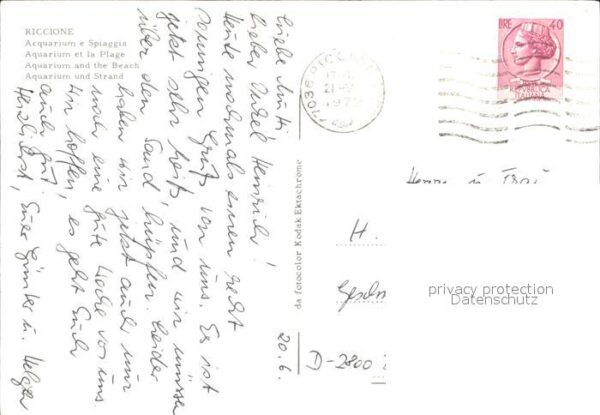 RICCIONE
Acquarium e Spiaggia
Aquarium et la Plage
Aquarium and the Beach
Aquarium und Strand
Liebe Mutti
lieber Onkel Heinrich!
Heute nochmals einen recht
sonnigen Gruß von uns. Es ist
jetzt sehr heiß und wir müssen
über den Sand hüpfen. Leider
haben wir jetzt auch nur
noch eine gute Woche vor uns.
Wir hoffen, es geht Euch
auch gut.
Herzlichst, Euer Günter u. Helga
da fotocolor Kodak Ektachrome
20.6.
LIRE 40
REPUBBLICA
ITALIANA
47036 RICCIONE
Herrn u. Frau
H.
D-2800
privacy protection
Datenschutz